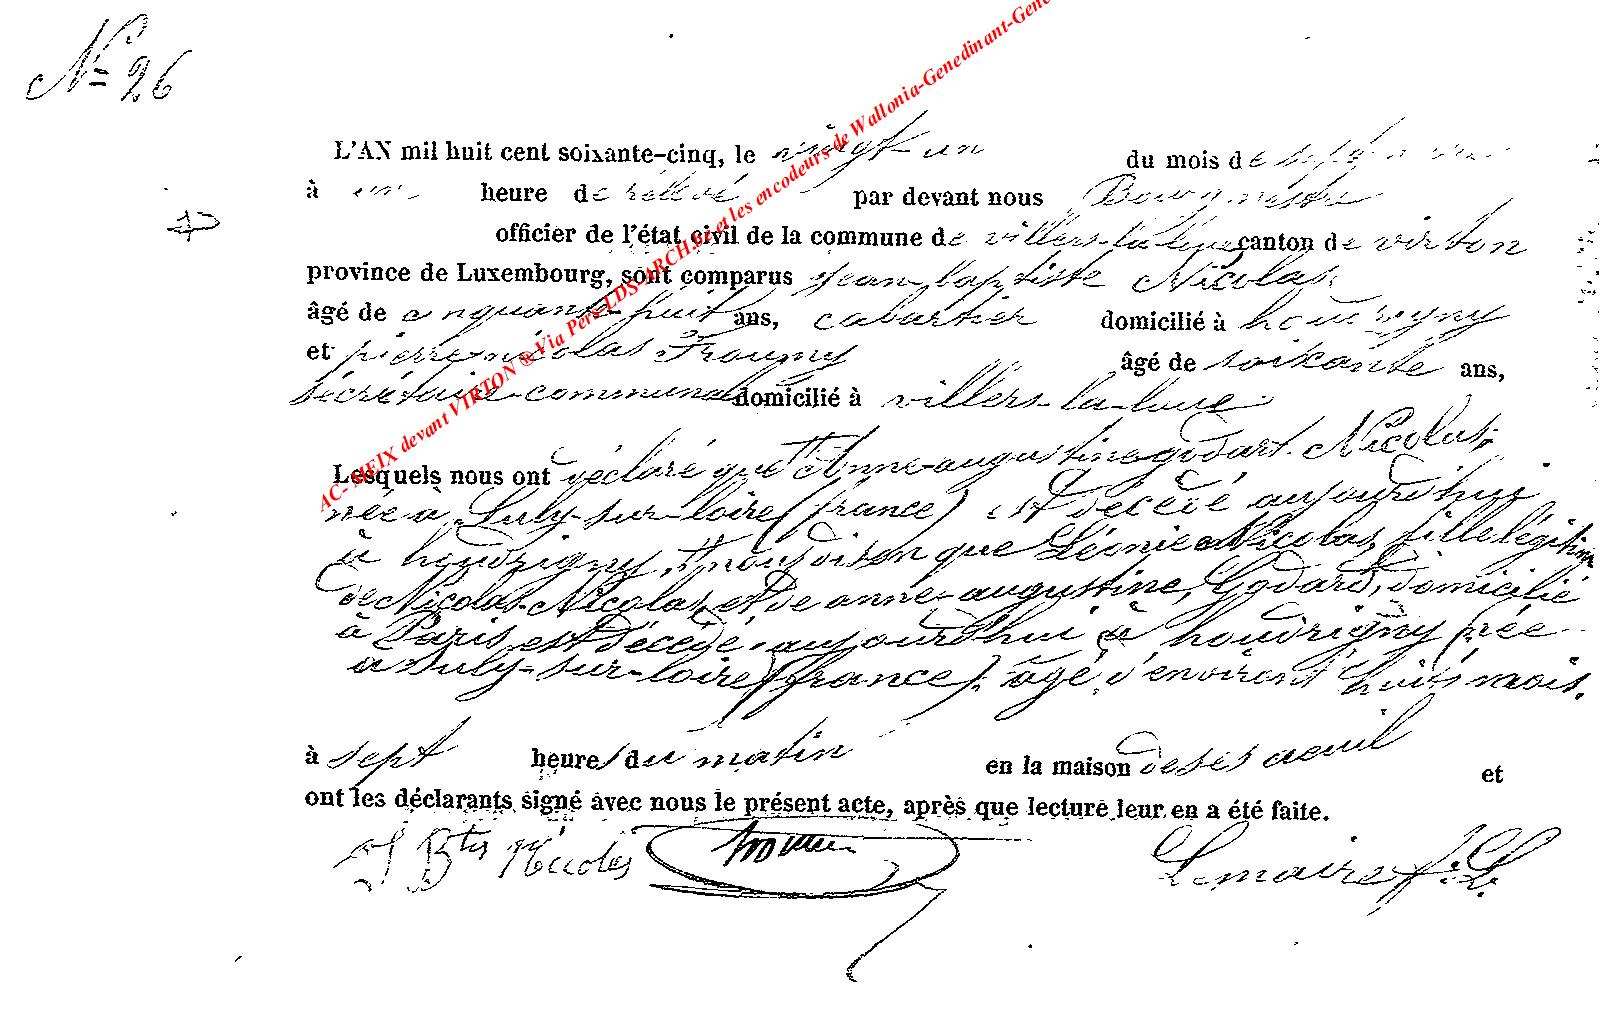 N° 26
AC- MEIX devant VIRTON ® Via Pers LDS-ARCH.be et les encodeurs de Wallonia-Genedinant-Gene
L'AN mil huit cent soixante-cinq, le vingt un du mois de
à un heure de rélévé par devant nous Bourgmestre
officier de l'état civil de la commune de villers-la-loue canton de virton
province de Luxembourg, sont comparus jean baptiste Nicolas
âgé de cinquante huit ans, cabartier domicilié à houdrigny
et pierre nicolas âgé de soixante ans,
sécrétaire communal domicilié à villers-la-loue
Lesquels nous ont déclaré que Anne augustine godart. Nicolas,
née à Suly-sur-loire (france) est decédé aujourdhui
à houdrigny, que Léonie Nicolas, fille légitime
de Nicolas Nicolas, et de anne-augustine, Godard, domicilié
à Paris est décédé aujourd'hui à houdrigny née
à Suly-sur-loire (france), âgé, d'environt huits mois.
à sept heure du matin en la maison de et
ont les déclarants signé avec nous le présent acte, après que lecture leur en a été faite.
J Bte Nicolas Lemaire